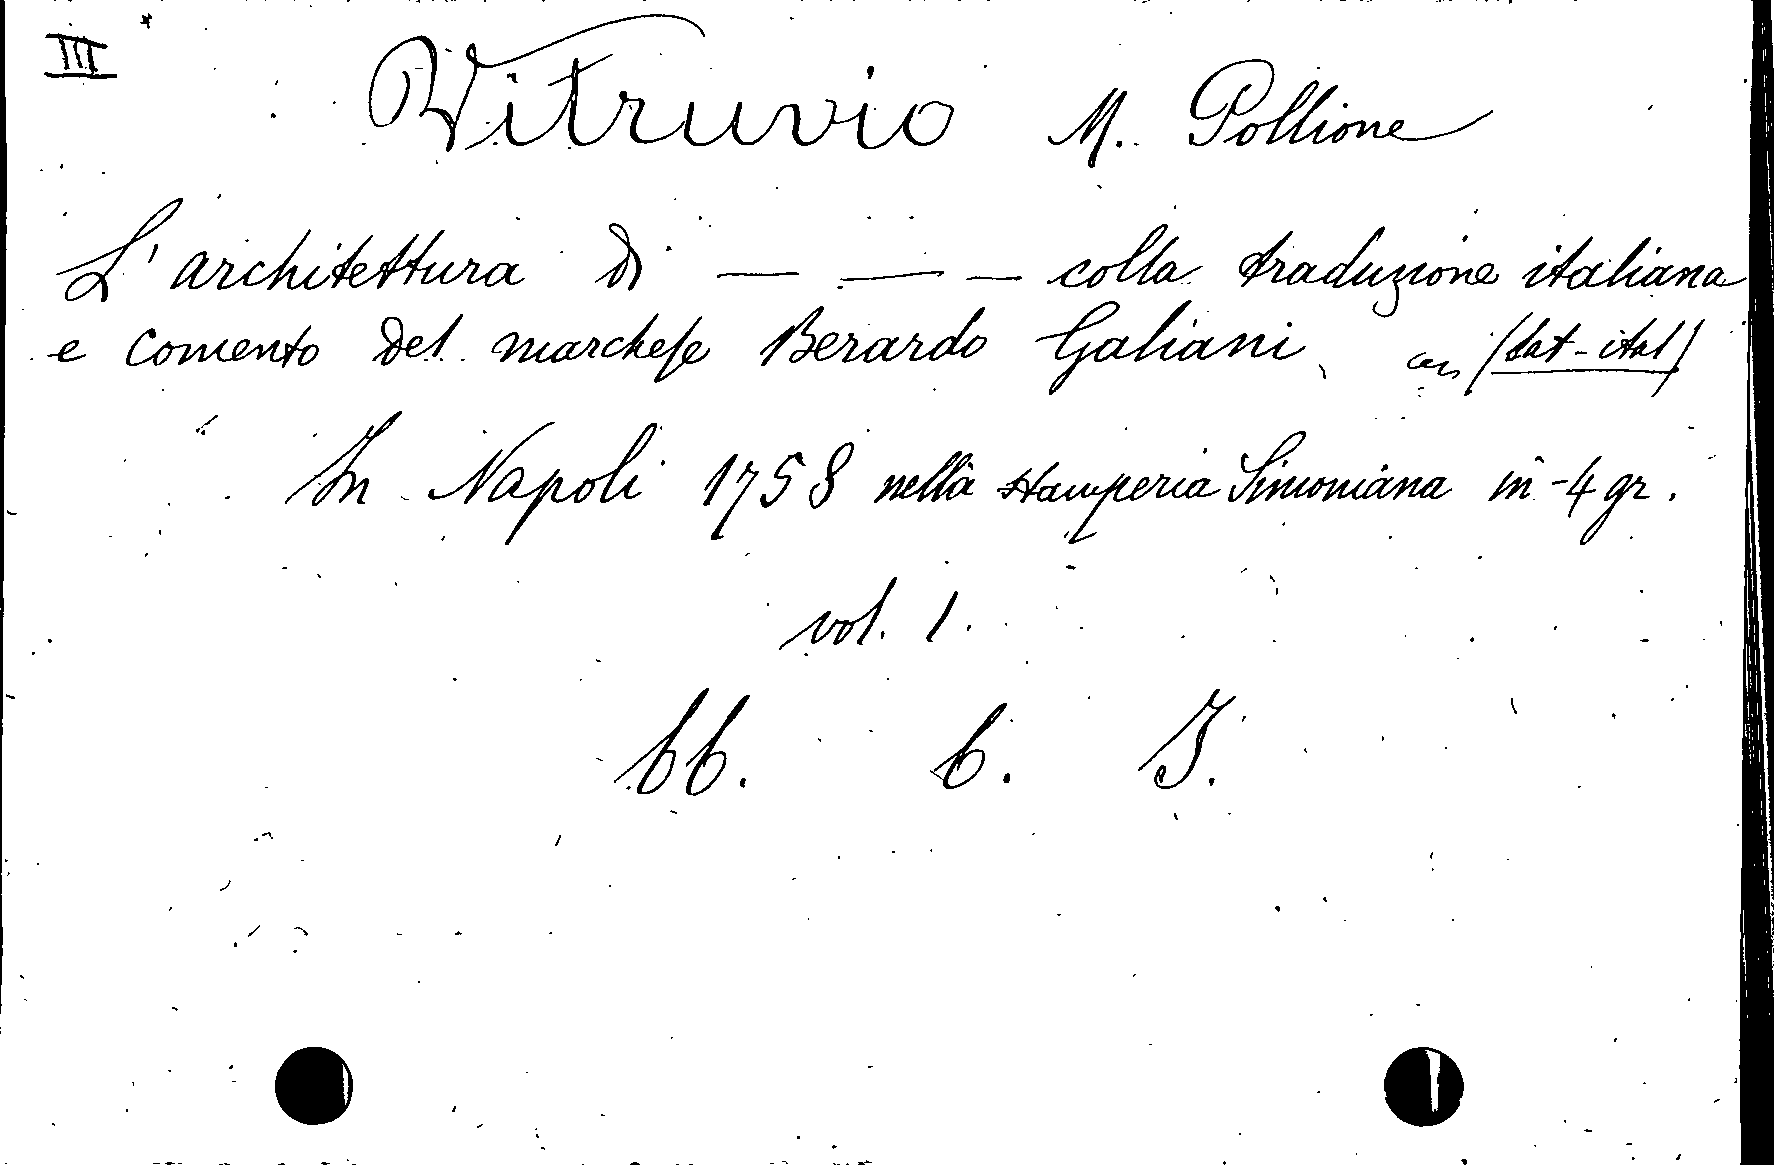 III
Vitruvio M. Pollione
L'architettura di — — — colla traduzione italiana
e comento del marchese Berardo Galiani (lat-ital)
In Napoli 1758 nella stamperia Simoniana in-4 gr.
vol. 1.